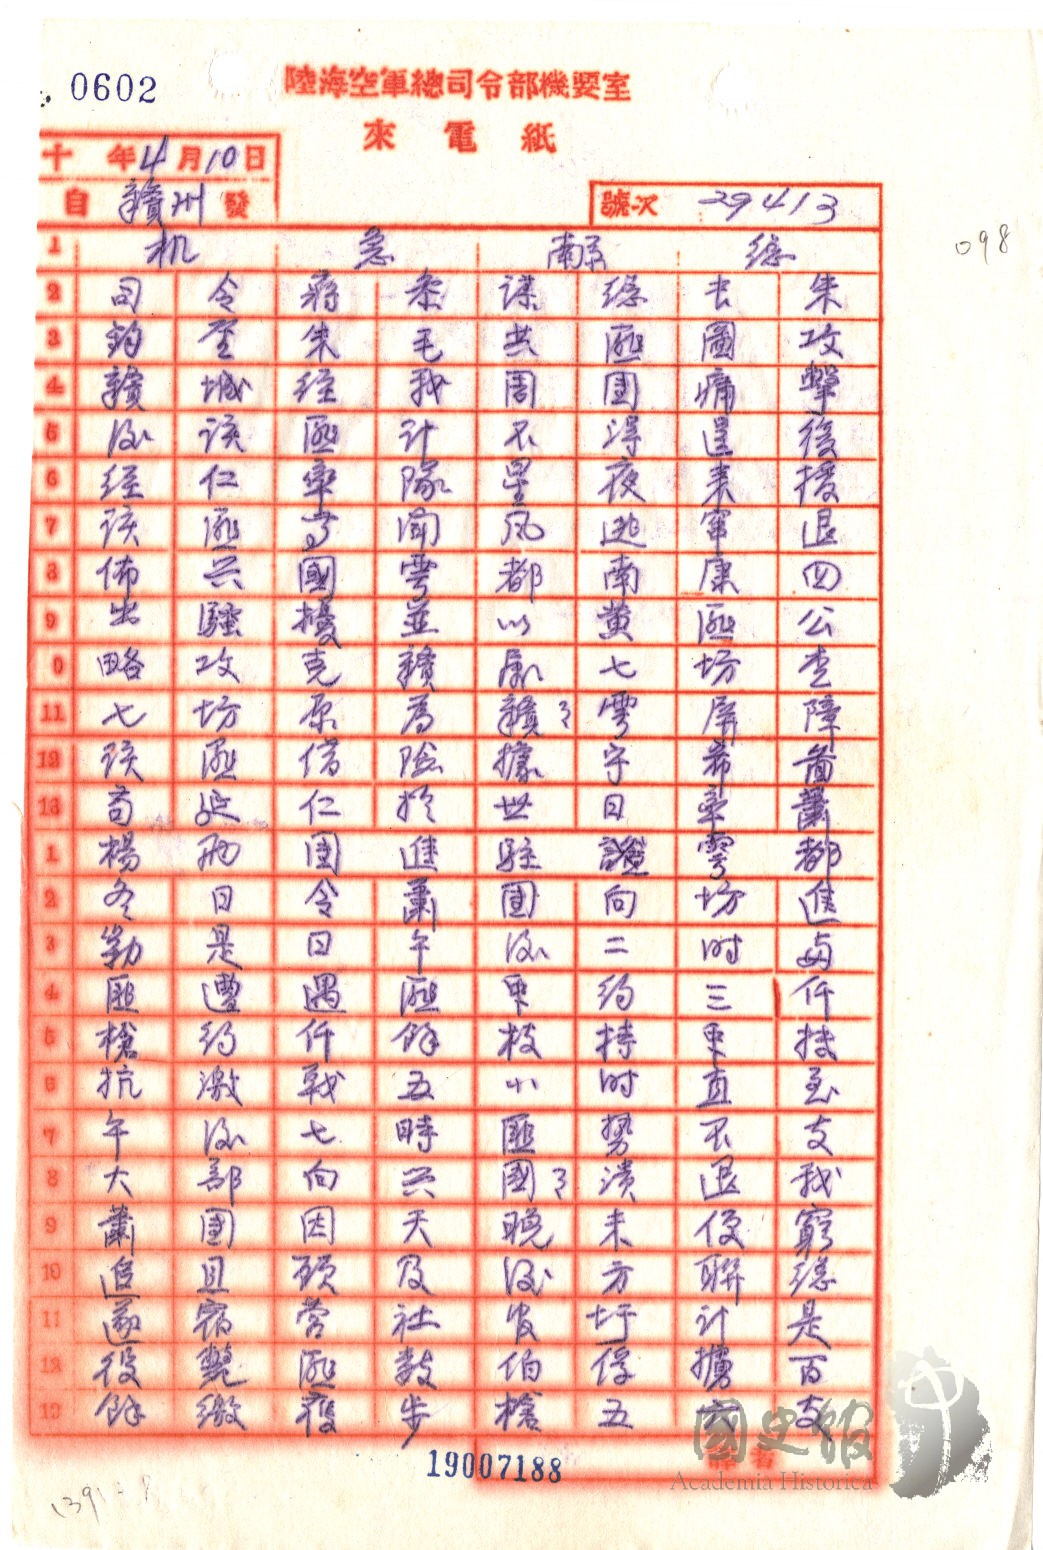 0602
陸海空軍總司令部機要室
來電紙
十 年4月10日
自 贛州 發
號次 29413
098
1 机 急 南京 總
2 司 令 蔣 參 謀 總 長 朱
3 鈞 鑒 朱 毛 共 匪 圖 攻
4 贛 城 經 我 周 團 痛 擊
5 後 該 匪 計 不 得 逞 後
6 經 仁 率 隊 星 夜 來 援
7 該 匪 等 聞 風 逃 竄 退
8 佈 興 國 雩 都 南 康 四
9 出 騷 擾 並 以 黄 匪 公
0 略 攻 克 贛 屬 七 坊 查
11 七 坊 原 為 贛 3 雩 屏 障
12 該 匪 借 險 據 守 希 啚
13 苟 延 仁 於 世 日 率 蕭
1 楊 兩 團 進 駐 雩 都
2 冬 日 令 蕭 團 向 坊 進
3 勦 是 日 午 後 二 时 與
4 匪 遭 遇 匪 眾 約 三 仟
5 槍 約 仟 餘 枝 持 眾 扶
6 抗 激 戰 五 小 时 直 至
7 午 後 七 時 匪 勢 不 支
8 大 部 向 興 國 3 潰 退 我
9 蕭 團 因 天 晚 未 便 窮
10 追 且 顧 及 後 方 聯 絡
11 遂 宿 營 社 背 圩 計 是
12 役 斃 匪 數 佰 俘 擄 百
13 餘 繳 獲 步 槍 五 六 支
譯者
19007188
國史館
Academia Historica